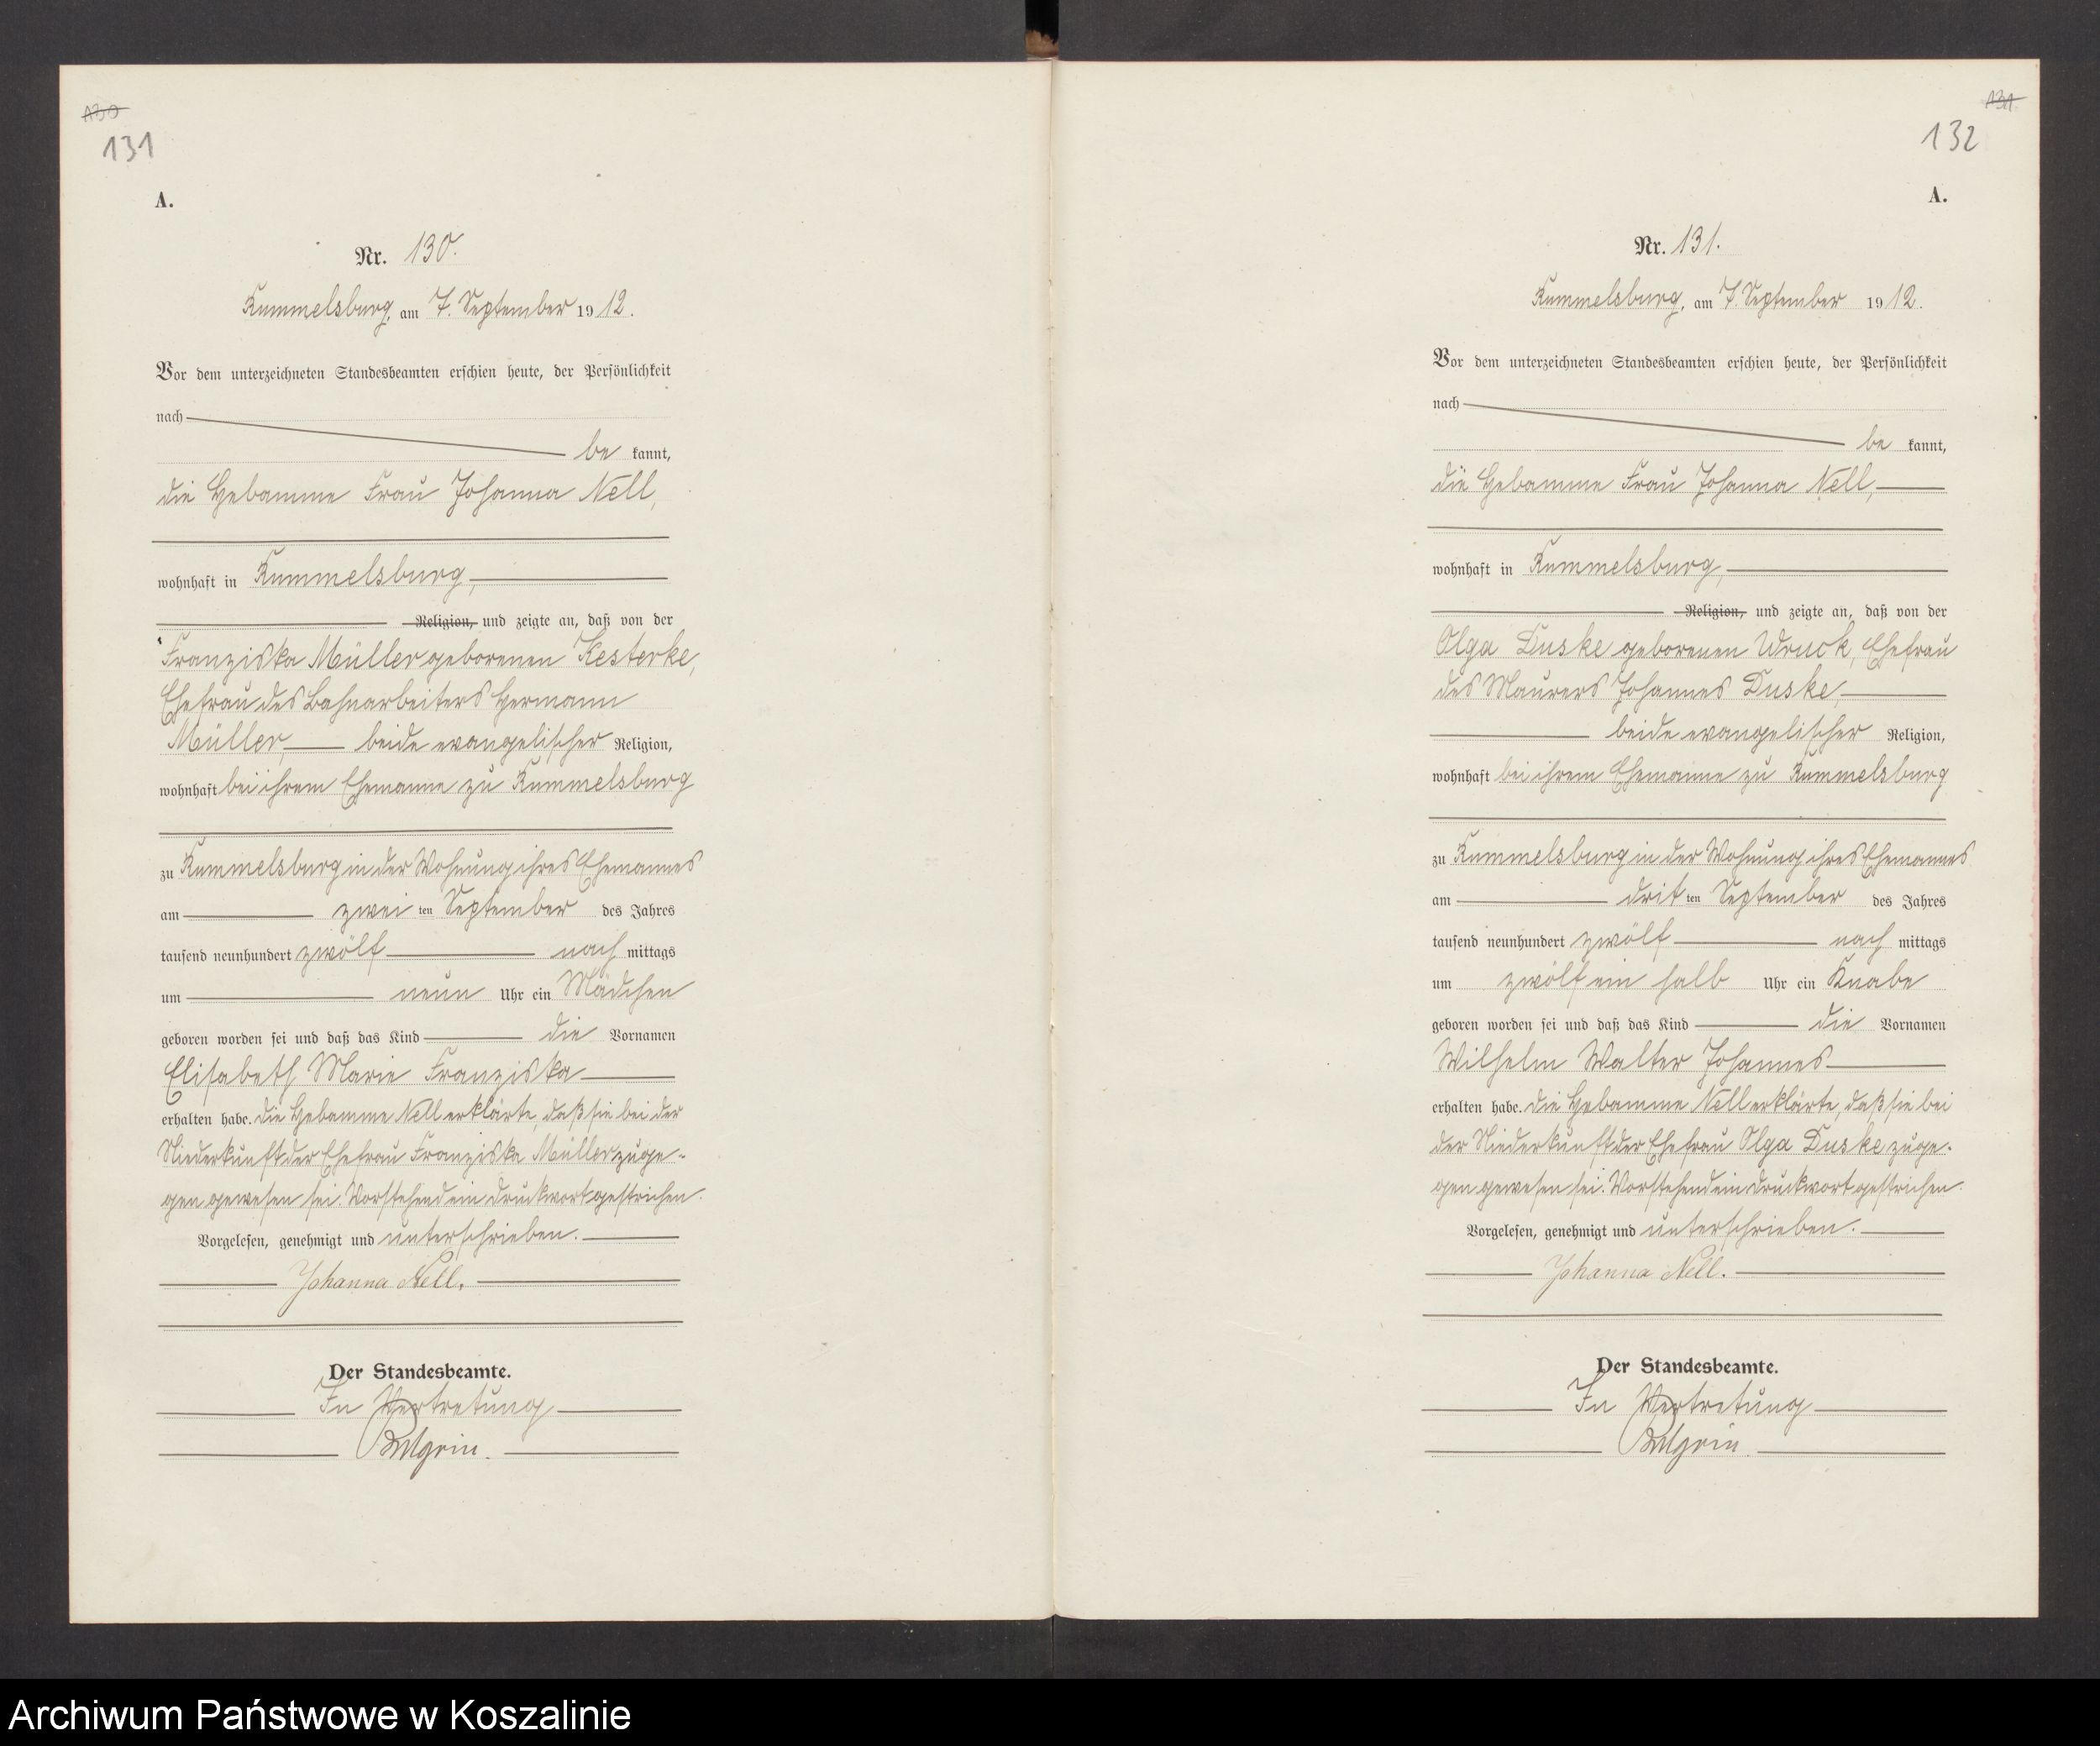 130
131
A.
Nr. 130.
Rummelsburg, am 7. September 1912.
Vor dem unterzeichneten Standesbeamten erschien heute, der Persönlichkeit
nach
be kannt,
die Hebamme Frau Johanna Nell,
wohnhaft in Rummelsburg,
Religion, und zeigte an, daß von der
Franziska Müller geborenen Kesterke,
Ehefrau des Bahnarbeiters Hermann
Müller, beide evangelischer Religion,
wohnhaft bei ihrem Ehemanne zu Rummelsburg
zu Rummelsburg in der Wohnung ihres Ehemannes
am zwei ten September des Jahres
tausend neunhundert zwölf nach mittags
um neun Uhr ein Mädchen
geboren worden sei und daß das Kind die Vornamen
Elisabeth Marie Franziska
erhalten habe. Die Hebamme Nell erklärte, daß sie bei der
Niederkunft der Ehefrau Franziska Müller zuge-
gen gewesen sei. Vorstehend ein Druckwort gestrichen.
Vorgelesen, genehmigt und unterschrieben.
Johanna Nell.
Der Standesbeamte.
In Vertretung
131
132
A.
Nr. 131.
Rummelsburg, am 7. September 1912.
Vor dem unterzeichneten Standesbeamten erschien heute, der Persönlichkeit
nach
be kannt,
die Hebamme Frau Johanna Nell,
wohnhaft in Rummelsburg,
Religion, und zeigte an, daß von der
Olga Duske geborenen Wruck, Ehefrau
des Maurers Johannes Duske,
beide evangelischer Religion,
wohnhaft bei ihrem Ehemanne zu Rummelsburg
zu Rummelsburg in der Wohnung ihres Ehemannes
am drit ten September des Jahres
tausend neunhundert zwölf nach mittags
um zwölf ein halb Uhr ein Knabe
geboren worden sei und daß das Kind die Vornamen
Wilhelm Walter Johannes
erhalten habe. Die Hebamme Nell erklärte, daß sie bei
der Niederkunft der Ehefrau Olga Duske zuge-
gen gewesen sei. Vorstehend ein Druckwort gestrichen.
Vorgelesen, genehmigt und unterschrieben.
Johanna Nell.
Der Standesbeamte.
In Vertretung
Archiwum Państwowe w Koszalinie